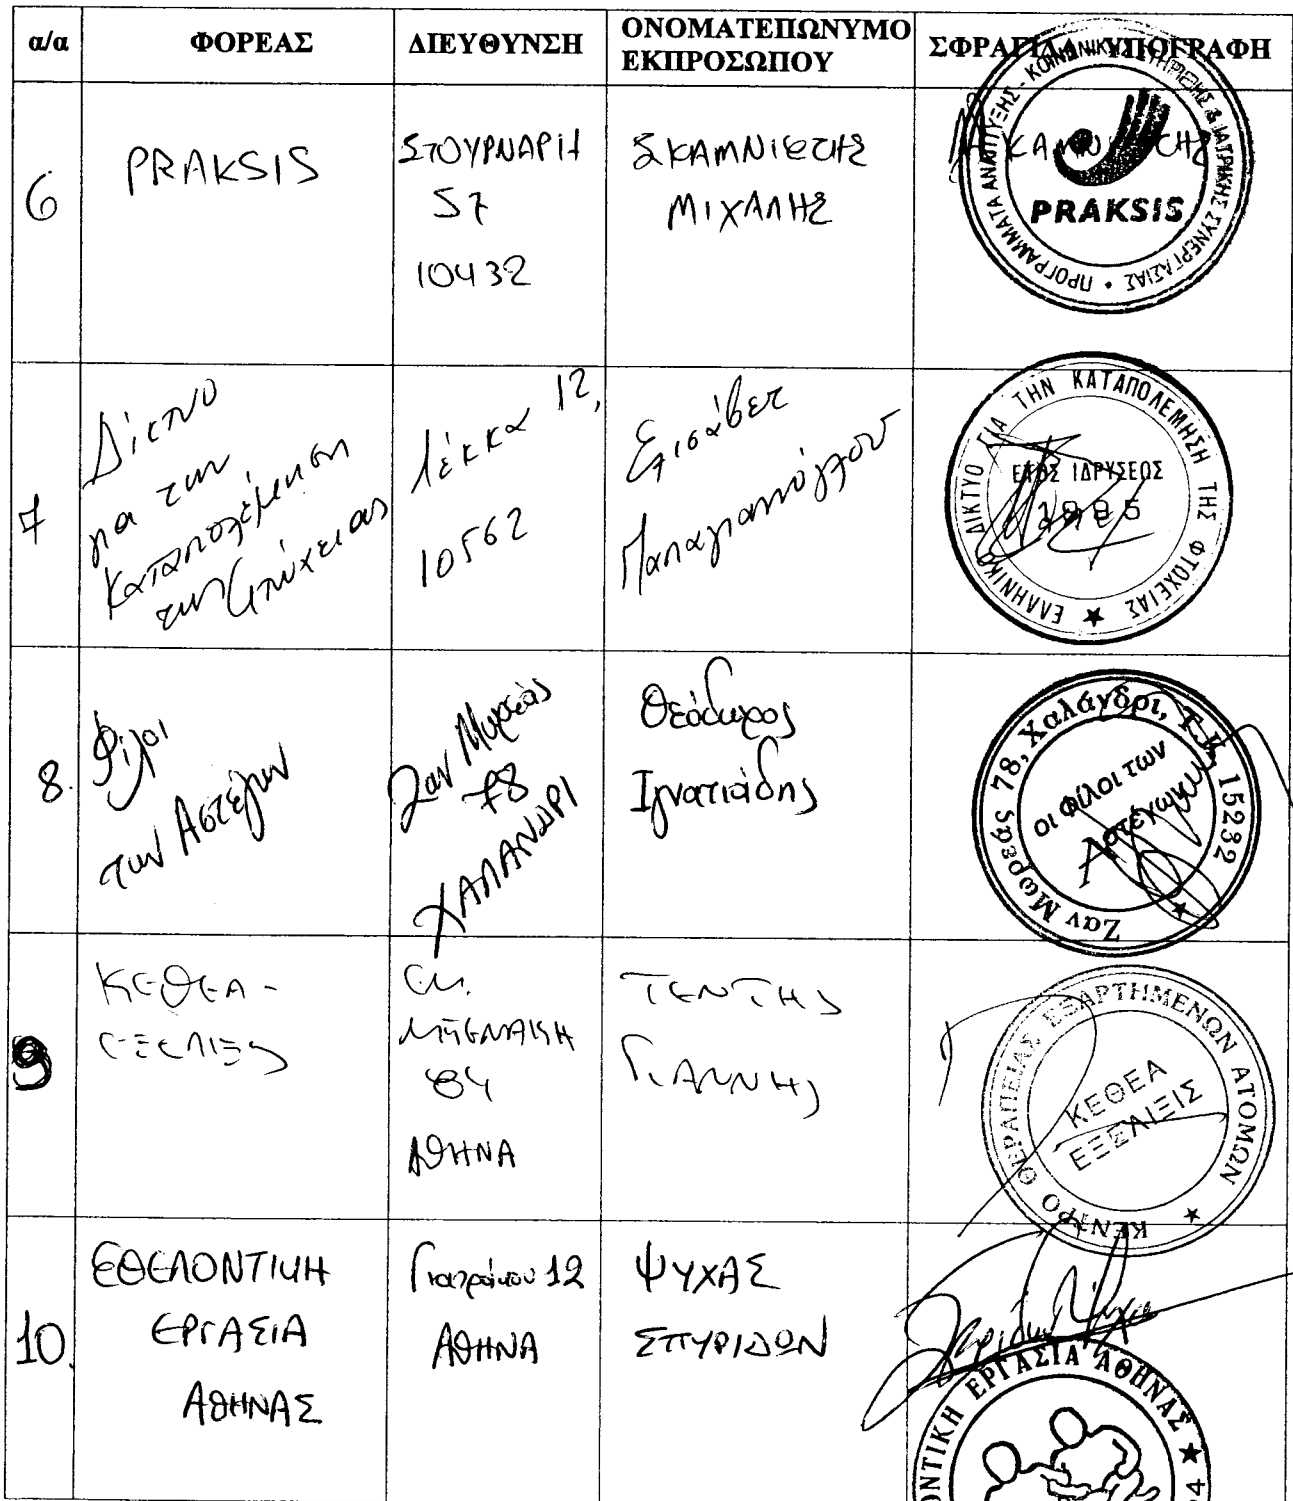 α/α ΦΟΡΕΑΣ ΔΙΕΥΘΥΝΣΗ ΟΝΟΜΑΤΕΠΩΝΥΜΟ ΕΚΠΡΟΣΩΠΟΥ ΣΦΡΑΓΙΔΑ - ΥΠΟΓΡΑΦΗ
6
PRAKSIS
ΣΤΟΥΡΝΑΡΗ
57
10432
ΣΚΑΜΝΙΩΤΗΣ
ΜΙΧΑΛΗΣ
ΠΡΟΓΡΑΜΜΑΤΑ ΑΝΑΠΤΥΞΗΣ - ΚΟΙΝΩΝΙΚΗΣ ΣΤΗΡΙΞΗΣ & ΙΑΤΡΙΚΗΣ ΣΥΝΕΡΓΑΣΙΑΣ •
PRAKSIS
7
Δίκτυο
για την
Καταπολέμηση
της Φτώχειας
Λέκκα 12,
10562
Ελισάβετ
Παπαγιαννόγλου
ΕΛΛΗΝΙΚΟ ΔΙΚΤΥΟ ΓΙΑ ΤΗΝ ΚΑΤΑΠΟΛΕΜΗΣΗ ΤΗΣ ΦΤΩΧΕΙΑΣ
ΕΤΟΣ ΙΔΡΥΣΕΩΣ
1995
8.
Φίλοι
των Αστέγων
Ζαν Μωρεάς
78
ΧΑΛΑΝΔΡΙ
Θεόδωρος
Ιγνατιάδης
Ζαν Μωρεας 78, Χαλάνδρι, Τ.Κ. 15232
οι Φίλοι των
Αστέγων
9
ΚΕΘΕΑ -
ΕΞΕΛΙΞΙΣ
ΕΜ.
ΜΠΕΝΑΚΗ
84
ΑΘΗΝΑ
ΤΕΝΤΗΣ
ΓΙΑΝΝΗΣ
ΚΕΝΤΡΟ ΘΕΡΑΠΕΙΑΣ ΕΞΑΡΤΗΜΕΝΩΝ ΑΤΟΜΩΝ
ΚΕΘΕΑ
ΕΞΕΛΙΞΙΣ
10.
ΕΘΕΛΟΝΤΙΚΗ
ΕΡΓΑΣΙΑ
ΑΘΗΝΑΣ
Γιατράκου 12
ΑΘΗΝΑ
ΨΥΧΑΣ
ΣΠΥΡΙΔΩΝ
ΟΝΤΙΚΗ ΕΡΓΑΣΙΑ ΑΘΗΝΑΣ